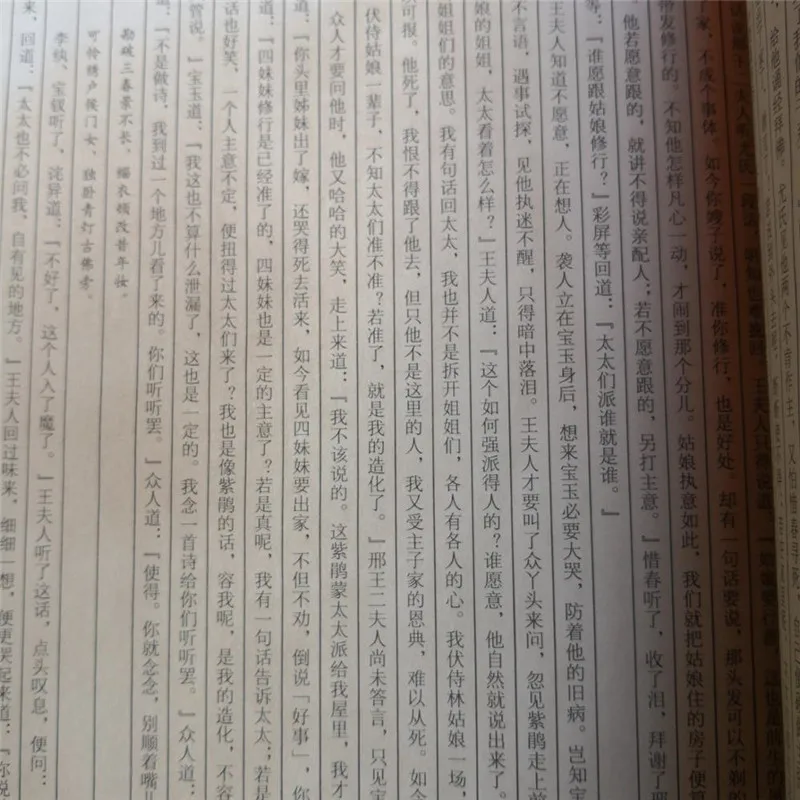 家，不成个事体。如今你嫂子说了，准你修行，也是好处。却有一句话要说，那头发可以不剃的
带发修行的。不知他怎样凡心一动，才闹到那个分儿。姑娘执意如此，我们就把姑娘住的房子便算
他若愿意跟的，就讲不得说亲配人；若不愿意跟的，另打主意。”惜春听了，收了泪，拜谢了邢
等：“谁愿跟姑娘修行？”彩屏等回道：“太太们派谁就是谁。”
王夫人知道不愿意，正在想人。袭人立在宝玉身后，想来宝玉必要大哭，防着他的旧病。岂知宝
不言语，遇事试探，见他执迷不醒，只得暗中落泪。王夫人才要叫了众丫头来问，忽见紫鹃走上前
娘的姐姐，太太看着怎么样？”王夫人道：“这个如何强派得人的？谁愿意，他自然就说出来了。
姐姐们的意思。我有句话回太太，我也并不是拆开姐姐们，各人有各人的心。我伏侍林姑娘一场，
可报。他死了，我恨不得跟了他去，但只他不是这里的人，我又受主子家的恩典，难以从死。如今
伏侍姑娘一辈子，不知太太们准不准？若准了，就是我的造化了。”邢王二夫人尚未答言，只见宝
众人才要问他时，他又哈哈的大笑，走上来道：“我不该说的。这紫鹃蒙太太派给我屋里，我才
“你头里姊妹出了嫁，还哭得死去活来，如今看见四妹妹要出家，不但不劝，倒说「好事」，你
“四妹妹修行是已经准了的，四妹妹也是一定的主意了？若是真呢，我有一句话告诉太太；若是
话也好笑，一个人主意不定，便扭得过太太们来了？我也是像紫鹃的话，容我呢，是我的造化，不容
管说。”宝玉道：“我这也不算什么泄漏了，这也是一定的。我念一首诗给你们听听罢。”众人道：
“不是做诗，我到过一个地方儿看了来的。你们听听罢。”众人道：“使得。你就念念，别顺着嘴儿
勘破三春景不长，缁衣顿改昔年妆。
可怜绣户侯门女，独卧青灯古佛旁。
李纨、宝钗听了，诧异道：“不好了，这个人入了魔了。”王夫人听了这话，点头叹息，便问：
来，回道：“太太也不必问我，自有见的地方。”王夫人回过味来，细细一想，便更哭起来道：“你说